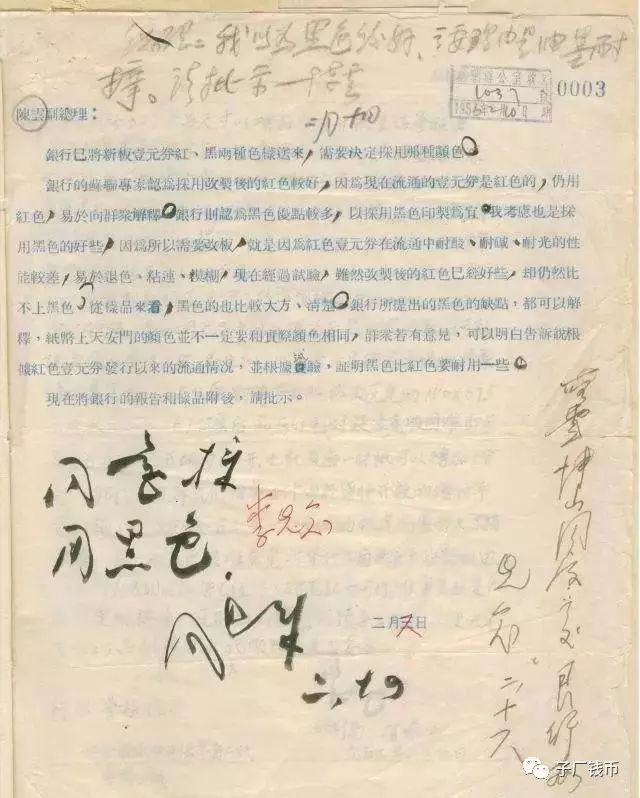 我以为黑色较好，主要理由是油墨耐
擦。请批示 陈雲
二月十四
1037
0003
陳雲副總理：
銀行已將新板壹元券紅、黑兩種色樣送來，需要決定採用那種顏色。
銀行的蘇聯專家認為採用改製後的紅色較好，因為現在流通的壹元券是紅色的，仍用
紅色，易於向群衆解釋。銀行則認為黑色優點較多，以採用黑色印製為宜。我考慮也是採
用黑色的好些，因為所以需要改板，就是因為紅色壹元券在流通中耐酸、耐碱、耐光的性
能較差，易於退色、粘連、模糊，現在經過試驗，雖然改製後的紅色已經好些，却仍然比
不上黑色，從樣品來看，黑色的也比較大方、清楚。銀行所提出的黑色的缺點，都可以解
釋，紙幣上天安門的顏色並不一定要和實際顏色相同，群衆若有意見，可以明白告訴說根
據紅色壹元券發行以來的流通情況，並根據試驗，証明黑色比紅色要耐用一些。
現在將銀行的報告和樣品附後，請批示。
同意採
用黑色.
李先念
二月 日
周恩来
二、十四
先念 二、十六
子厂钱币